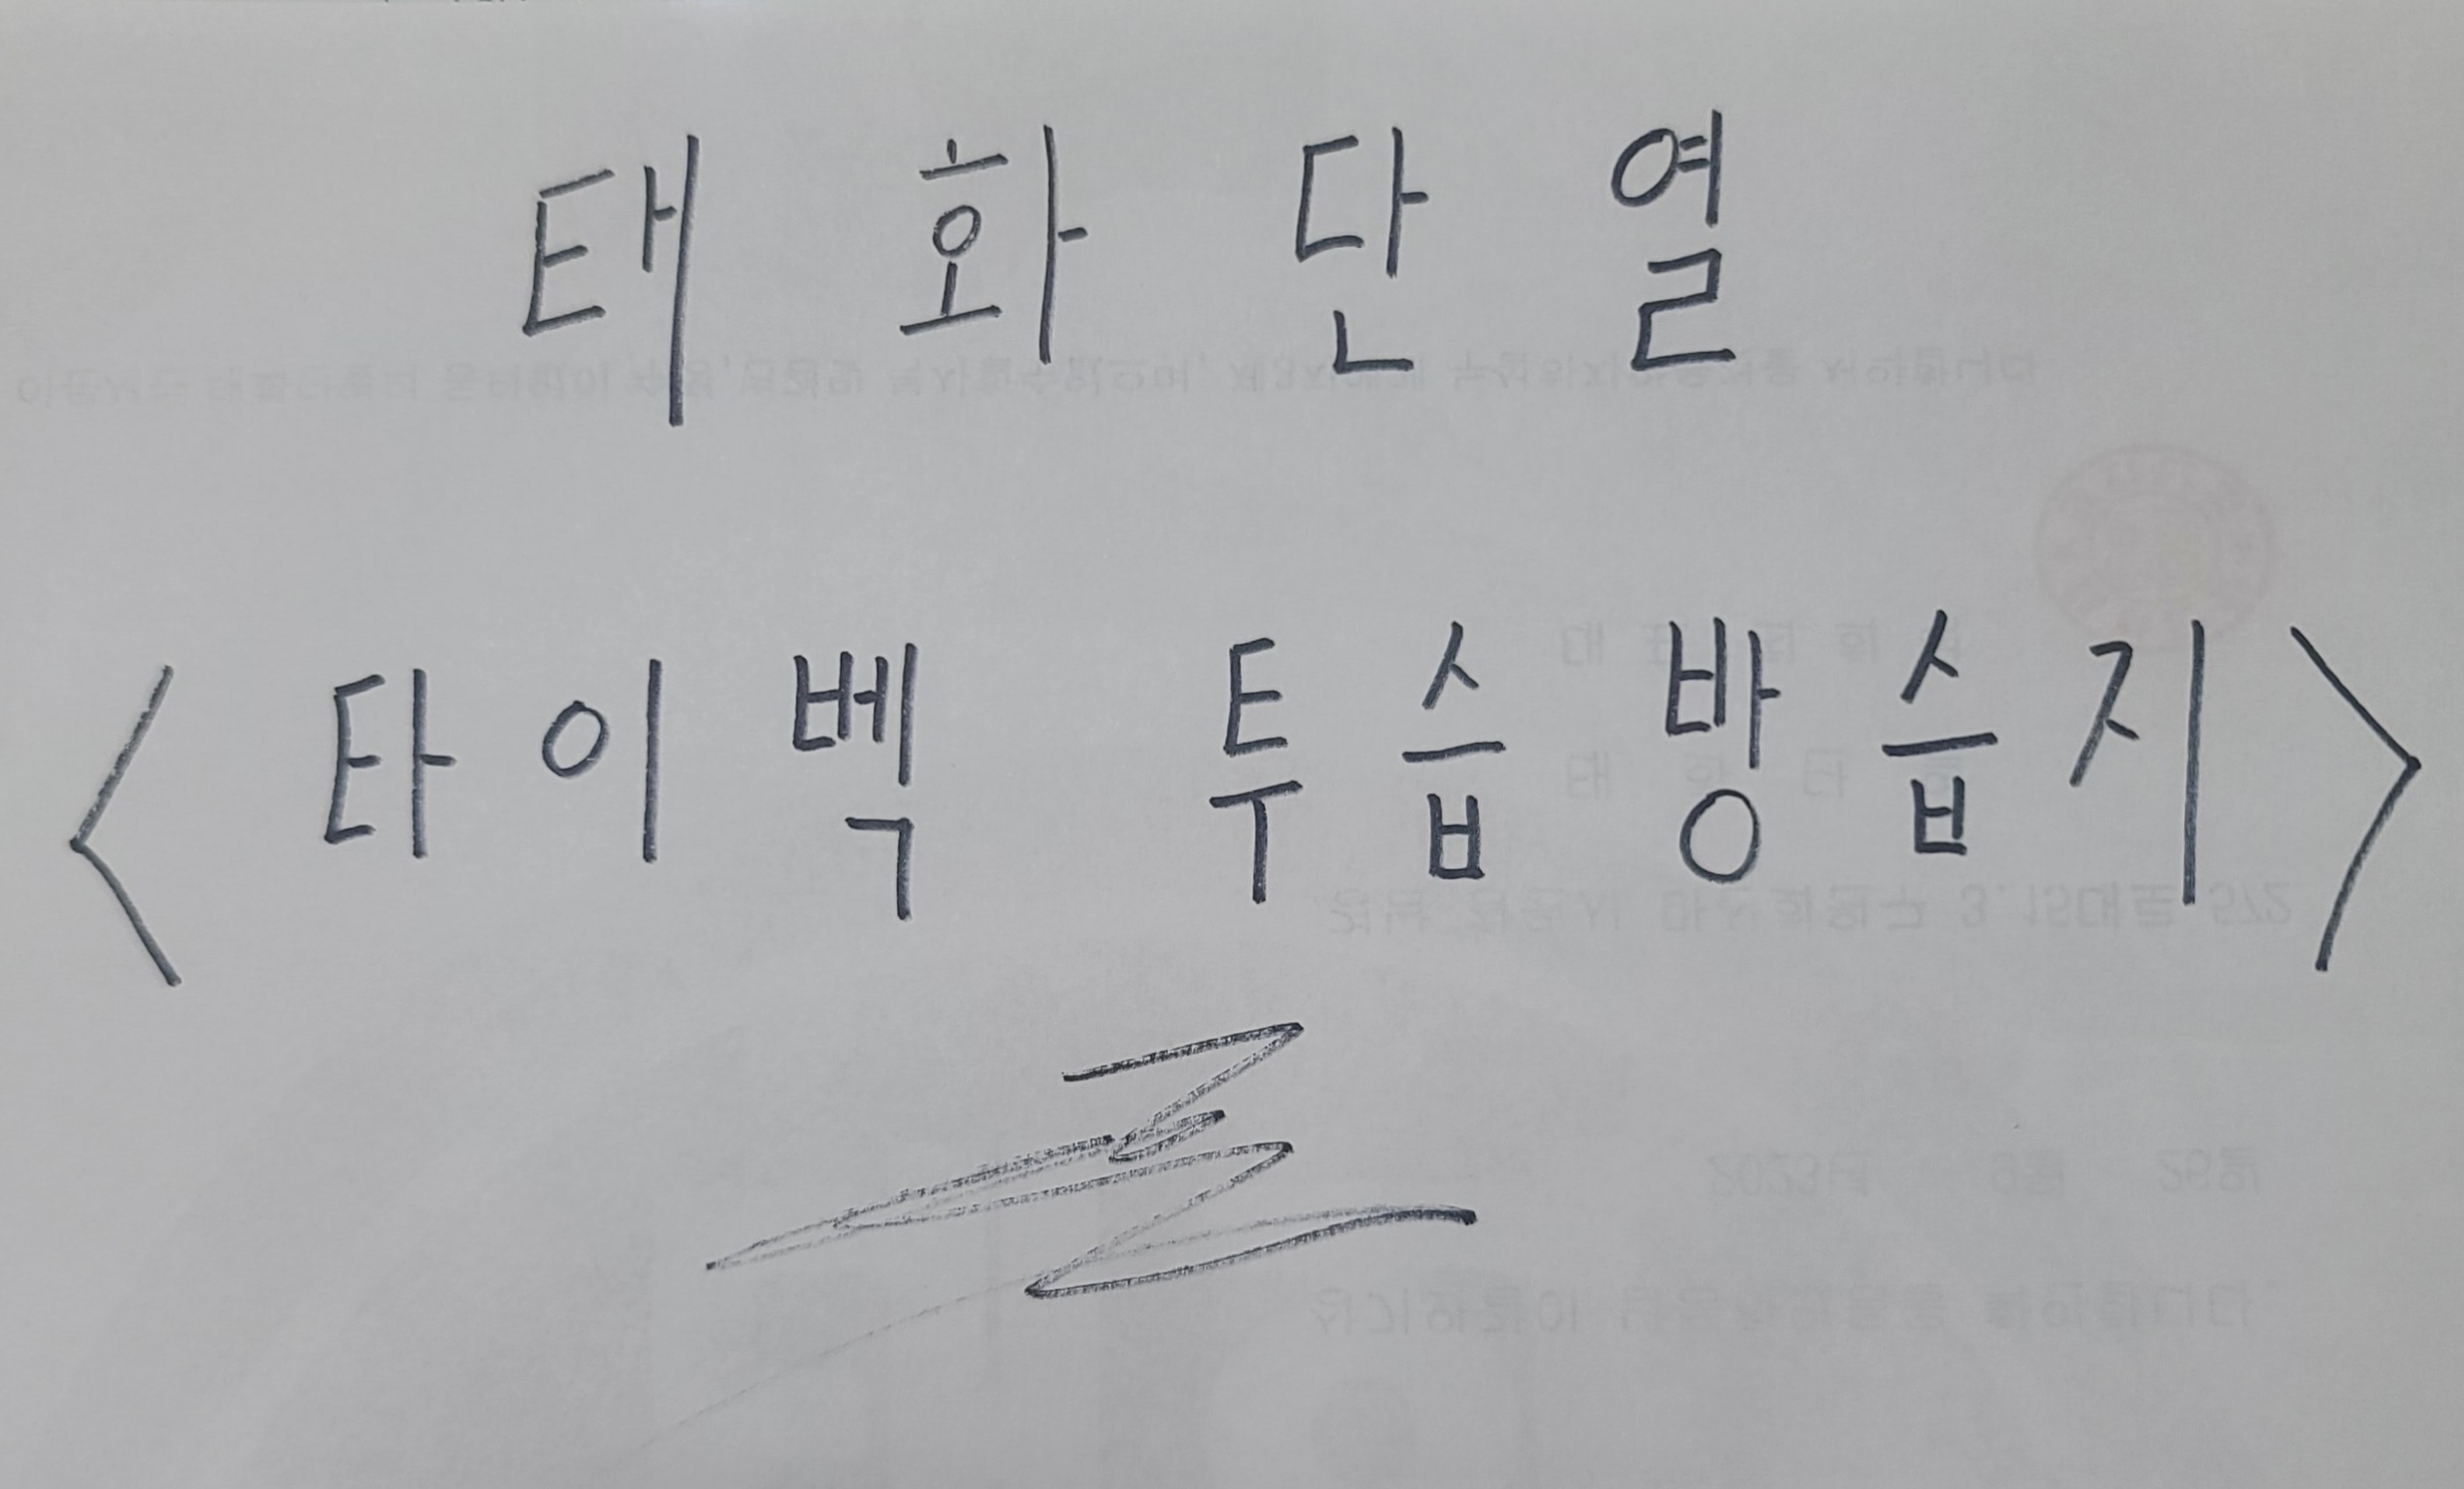 태화단열
<타이벡 투습방습지>